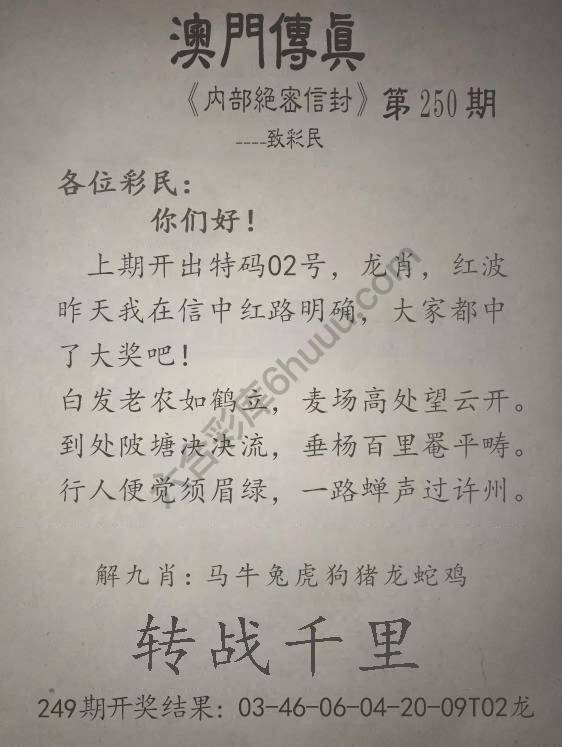 澳門傳眞
《内部絕密信封》第250期
----致彩民
各位彩民:
你们好!
上期开出特码02号，龙肖，红波
昨天我在信中红路明确，大家都中
了大奖吧!
白发老农如鹤立，麦场高处望云开。
到处陂塘决决流，垂杨百里罨平畴。
行人便觉须眉绿，一路蝉声过许州。
六合彩库6huuu.com
解九肖:马牛兔虎狗猪龙蛇鸡
转战千里
249期开奖结果: 03-46-06-04-20-09T02龙